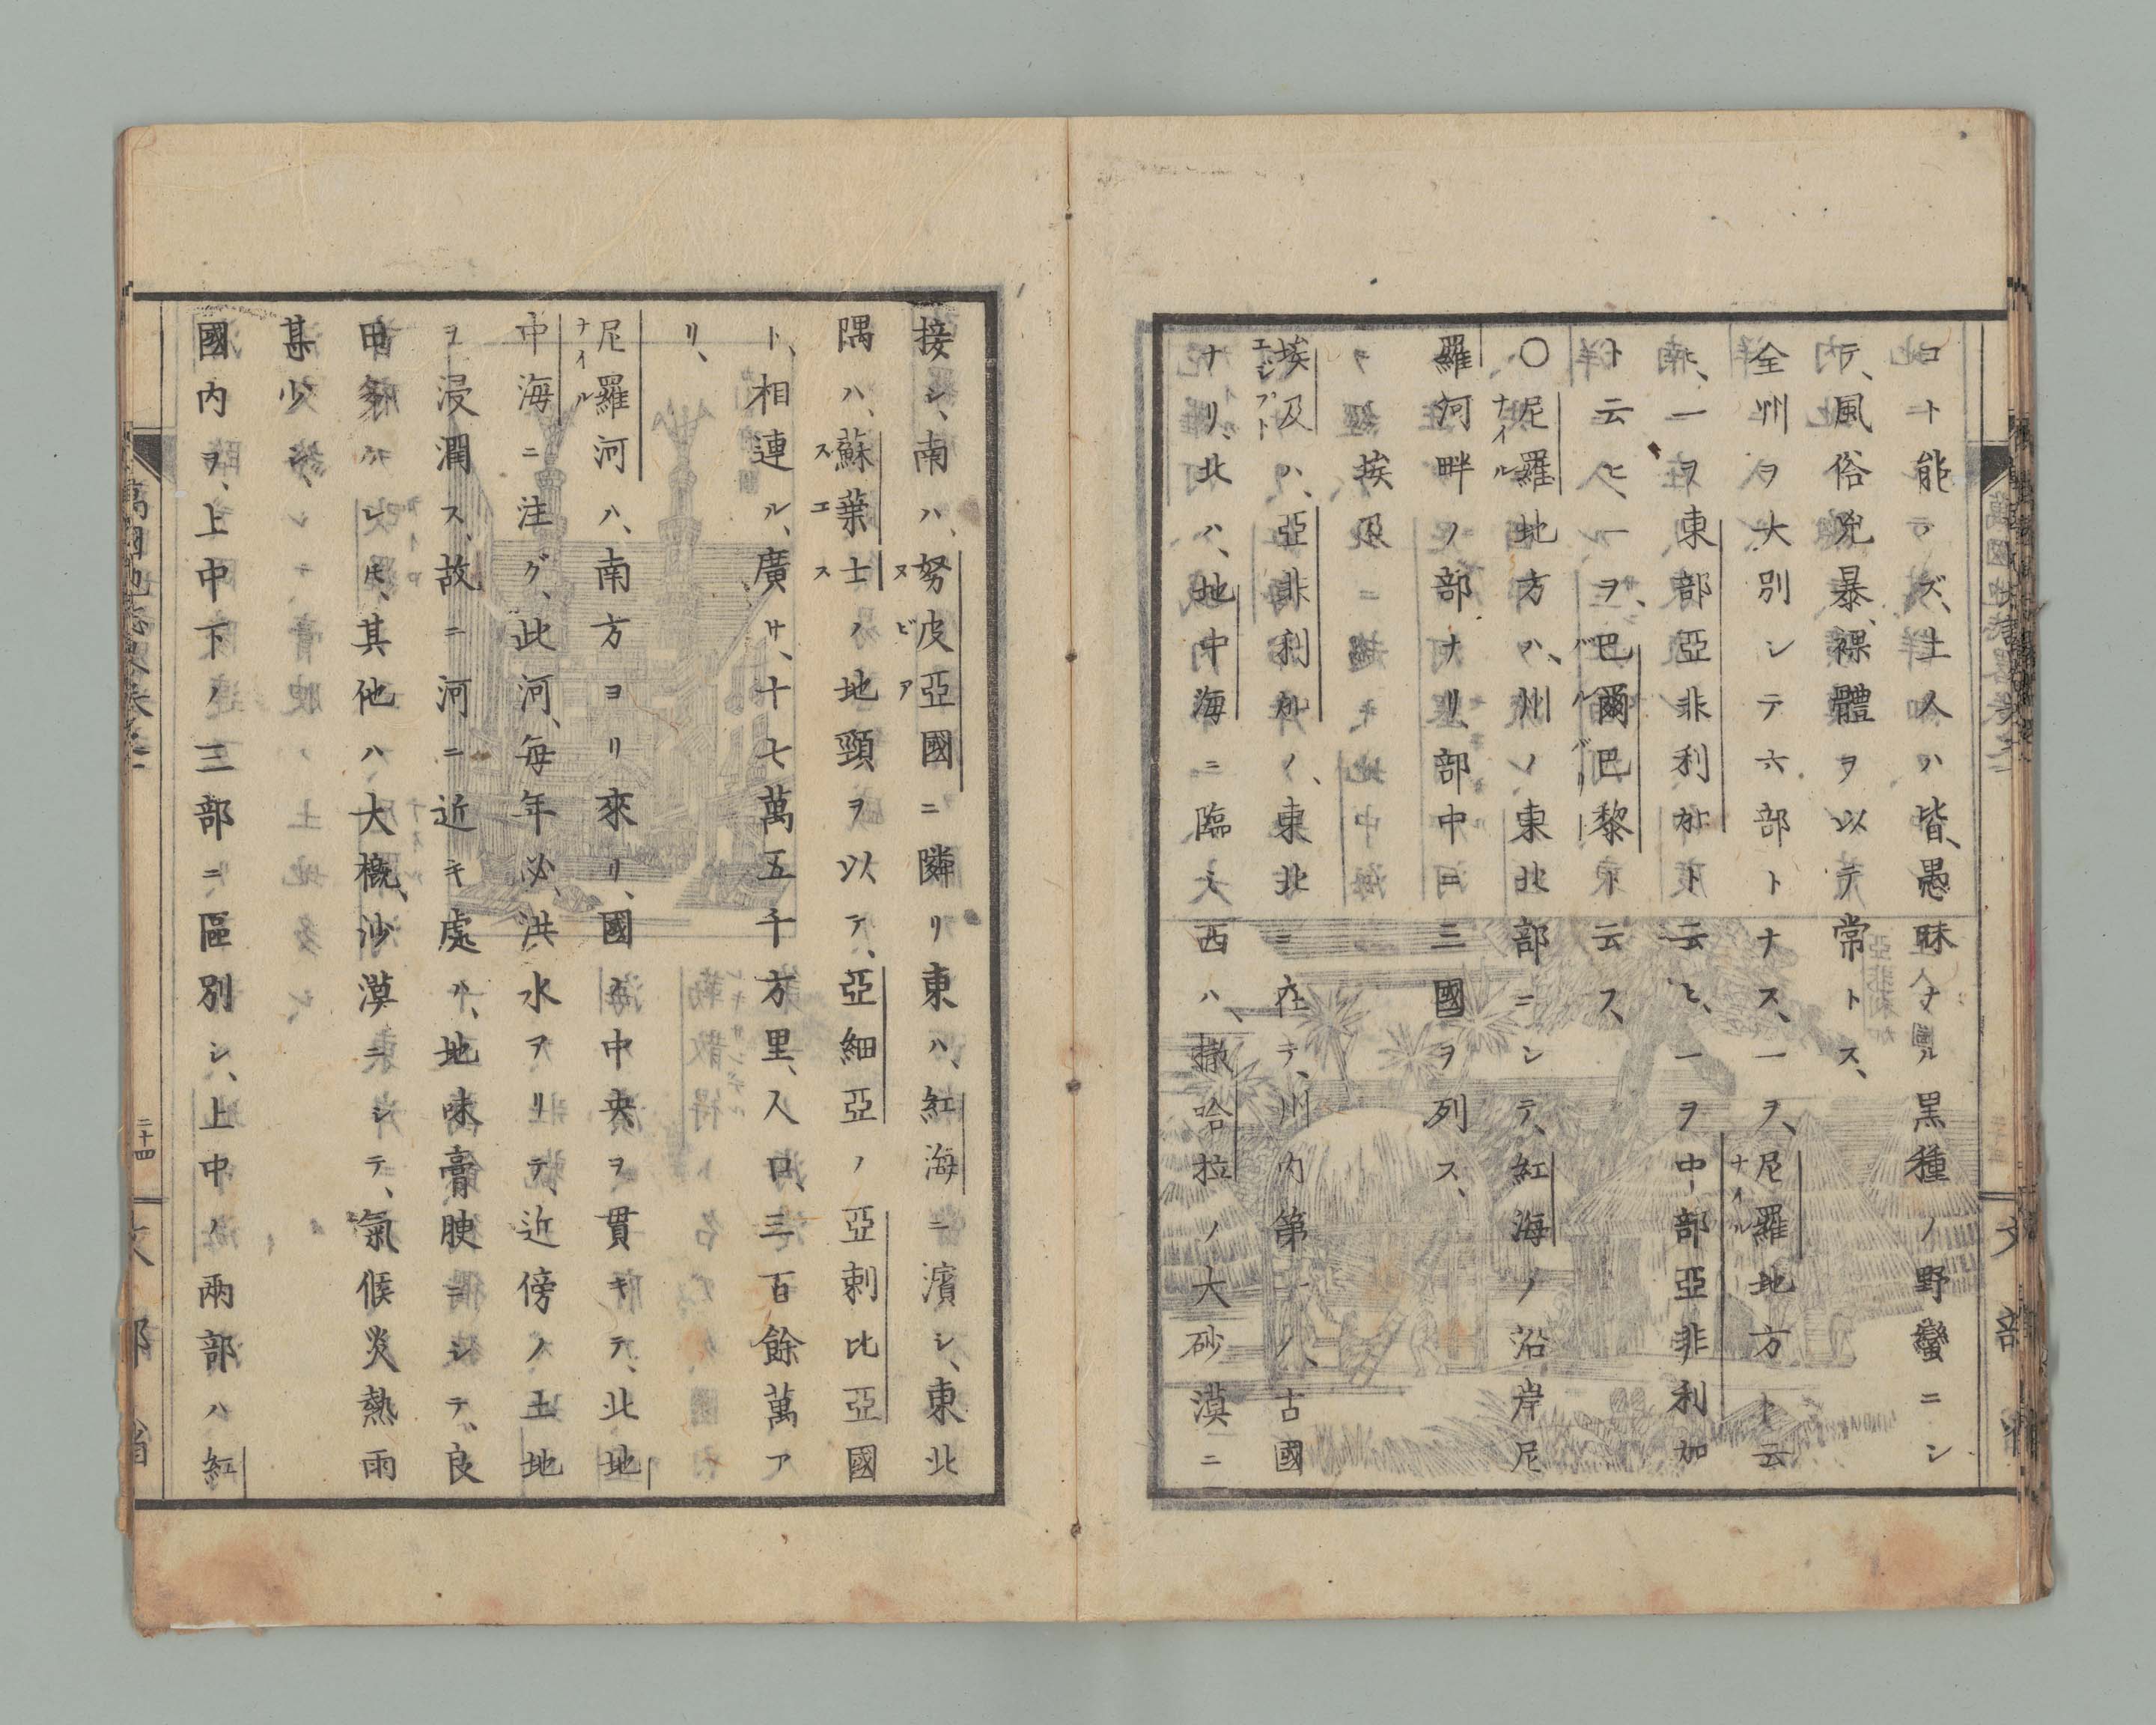 コト能ハズ、土人ハ皆、愚昧ナル黒種ノ野蠻ニシ
テ、風俗兇暴、裸體ヲ以テ常トス、
全州ヲ大別シテ六部トナス、一ヲ、尼羅地方ト云
ナイル
ヒ、一ヲ東部亞非利加ト云ヒ、一ヲ中部亞非利加
ト云ヒ一ヲ、巴爾巴黎ト云フ、
バルバリー
〇尼羅地方ハ、州ノ東北部ニシテ、紅海ノ沿岸尼
ナイル
羅河畔ノ部ナリ、部中ニ三國ヲ列ス、
埃及
埃及ハ、亞非利加ノ、東北ニ在テ、州内第一ノ、古國
エジプト
ナリ、北ハ、地中海ニ臨ミ西ハ、撒哈拉ノ大砂漠ニ
接シ、南ハ、努皮亞國ニ隣リ東ハ、紅海ニ濱シ、東北
ヌビア
隅ハ、蘇葉士ノ地頸ヲ以テ、亞細亞ノ亞剌比亞國
スエス
ト、相連ル、廣サ、十七萬五千方里、人口、三百餘萬ア
リ、
尼羅河ハ、南方ヨリ來リ、國ノ中央ヲ貫キテ、北地
ナイル
中海ニ注グ、此河、毎年必、洪水アリテ、近傍ノ土地
ヲ浸潤ス、故ニ河ニ近キ處ハ、地味膏腴ニシテ、良
田多シ、其他ハ、大概、沙漠ニシテ、氣候炎熱雨
甚少シ、
國内ヲ、上中下ノ三部ニ區別シ、上中ノ兩部ハ紅
萬國地誌畧卷之二
二十四
文部省